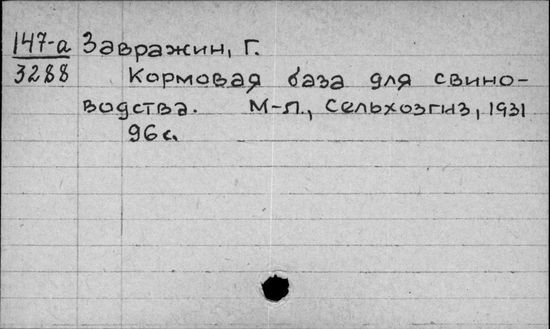 147-а Завражин, Г.
3288 Кормовая база для свино-
водства. М-Л., Сельхозгиз, 1931
96 с.